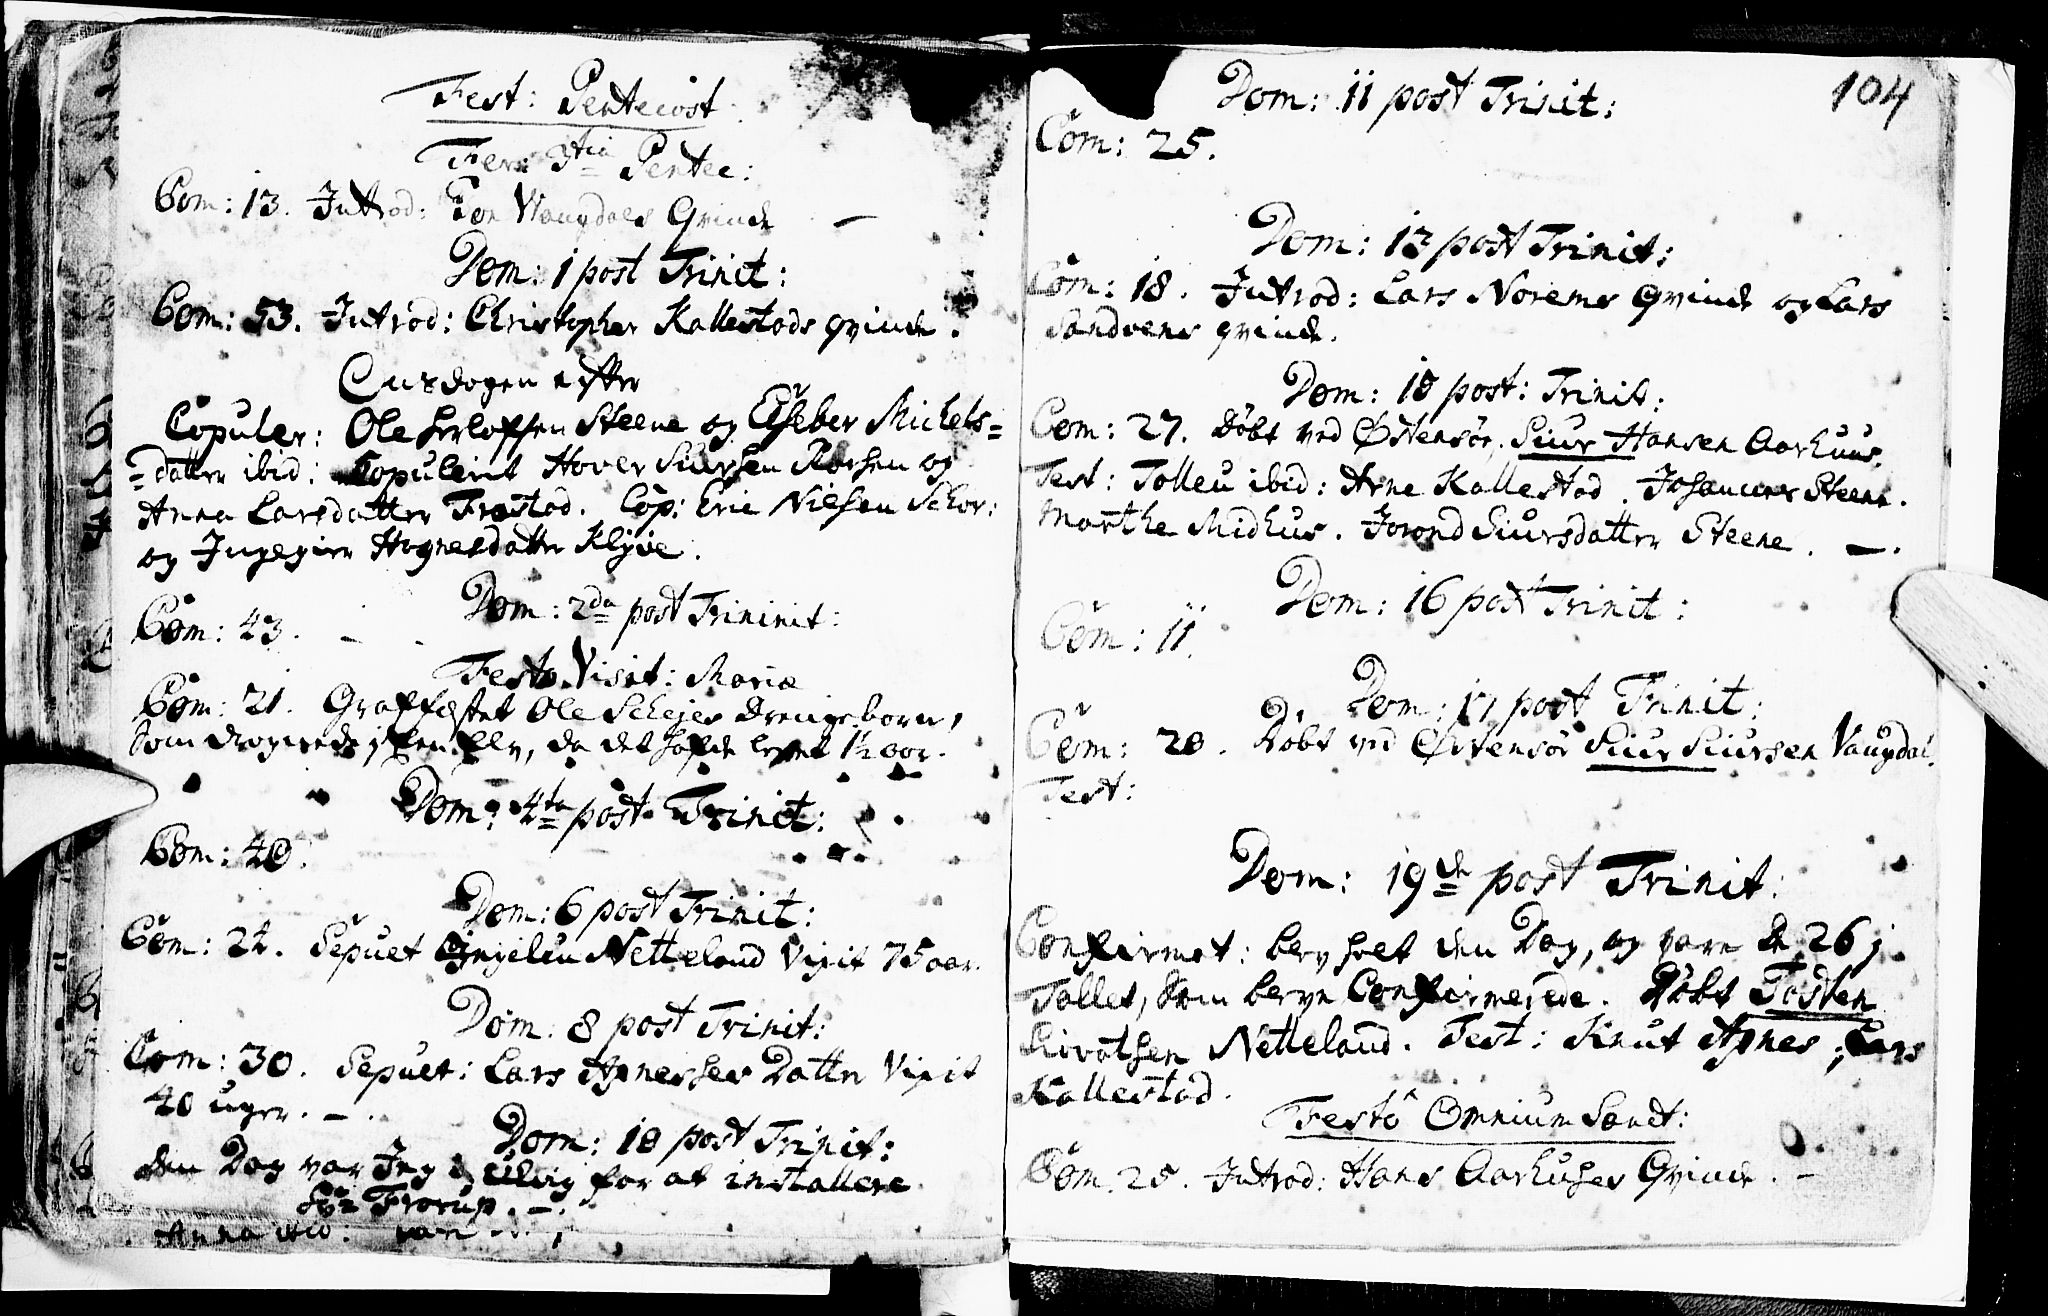 Fest: Pentecost
Fer: 3tia Pentec:
Com: 13. Introd: Jon Vangdals Qvinde —
Dom: 1 post Trinit:
Com: 53. Introd: Christopher Kallestads qvinde.
Onsdagen efter
Copuler: Ole Herlofsen Steene og Elseber Michels=
=datter ibid: Copulerit Hover Siursen Rorsen og
Anna Larsdatter Frøstad. Cop: Eric Nielsen Schor:
og Ingegier Hognesdatter Klyve.
Dom: 2da post Trininit:
Com: 43. —
Festo Visit: Mariæ
Com: 21. Graffæstet Ole Schejes Drengebarn,
som i en Elv, da det hafde levet 1½ aar.
Dom: 4ta post Trinit:
Com: 40.
Dom: 6 post Trinit:
Com: 24. Sepult Engelen Netteland Vixit 75 aar.
Dom: 8 post Trinit:
Com: 30. Sepult: Lars Datter Vixit
40 uger. —.
Dom: 10 post Trinit:
den Dag var Jeg i Ulvig for at installere
Hr Frorup. —.
Anna
104
Dom: 11 post Trinit:
Com: 25.
Dom: 13 post Trinit:
Com: 18. Introd: Lars Norems Qvinde og Lars
Sandvens qvinde.
Dom: 15 post: Trinit:
Com: 27. Døbt ved Østensöe. Siur Hansen Aarhuus.
Test: Tolleu ibid: Arne Kallestad. Johannes Steene.
Marthe Midhus. Jorond Siursdatter Steene. —.
Dom: 16 post Trinit:
Com: 11.
Dom: 17 post Trinit:
Com: 20. Døbt ved Østensöe Siur Siursen Vangdal.
Test:
Dom: 19de post Trinit:
Confirmat: blev holt den Dag, og vare de 26 i
Tallet, som bleve Confirmerede. Døbt Tosten
Sivatsen Netteland. Test: Knut Axnes, Lars
Kallestad.
Festo Omnium Sanct:
Com. 25. Introd: Hans Aarhuses Qvinde. —